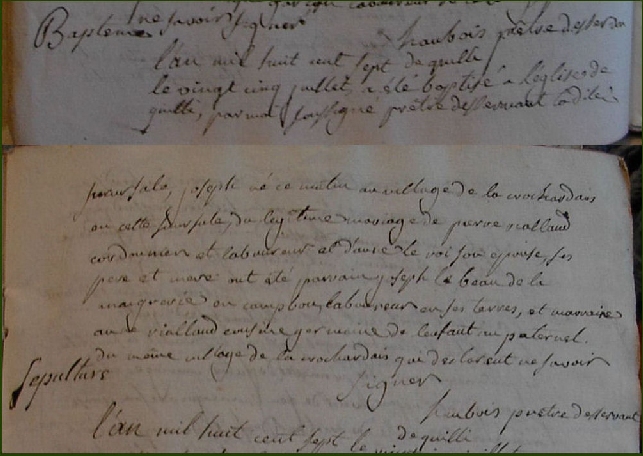 ne savoir signer
Bapteme
haubois prêtre desservant
l'an mil huit cent sept de quilli
le vingt cinq juillet, a été baptisé a l'eglise de
quilli, par moi soussigné prêtre desservant la dite
joseph né ce matin au village de la crochardais
en cette du legitime mariage de pierre
cordonnier et laboureur et d'anne le roi son epouse, ses
pere et mere ont été parrain joseph le beau de la
en campbon, laboureur en ses terres, et marraine
anne viallaud cousine germaine de l'enfant au paternel.
du même village de la crochardais qui declarent ne savoir
signer
Sepulture
haubois prêtre desservant
de quilli
l'an mil huit cent sept le